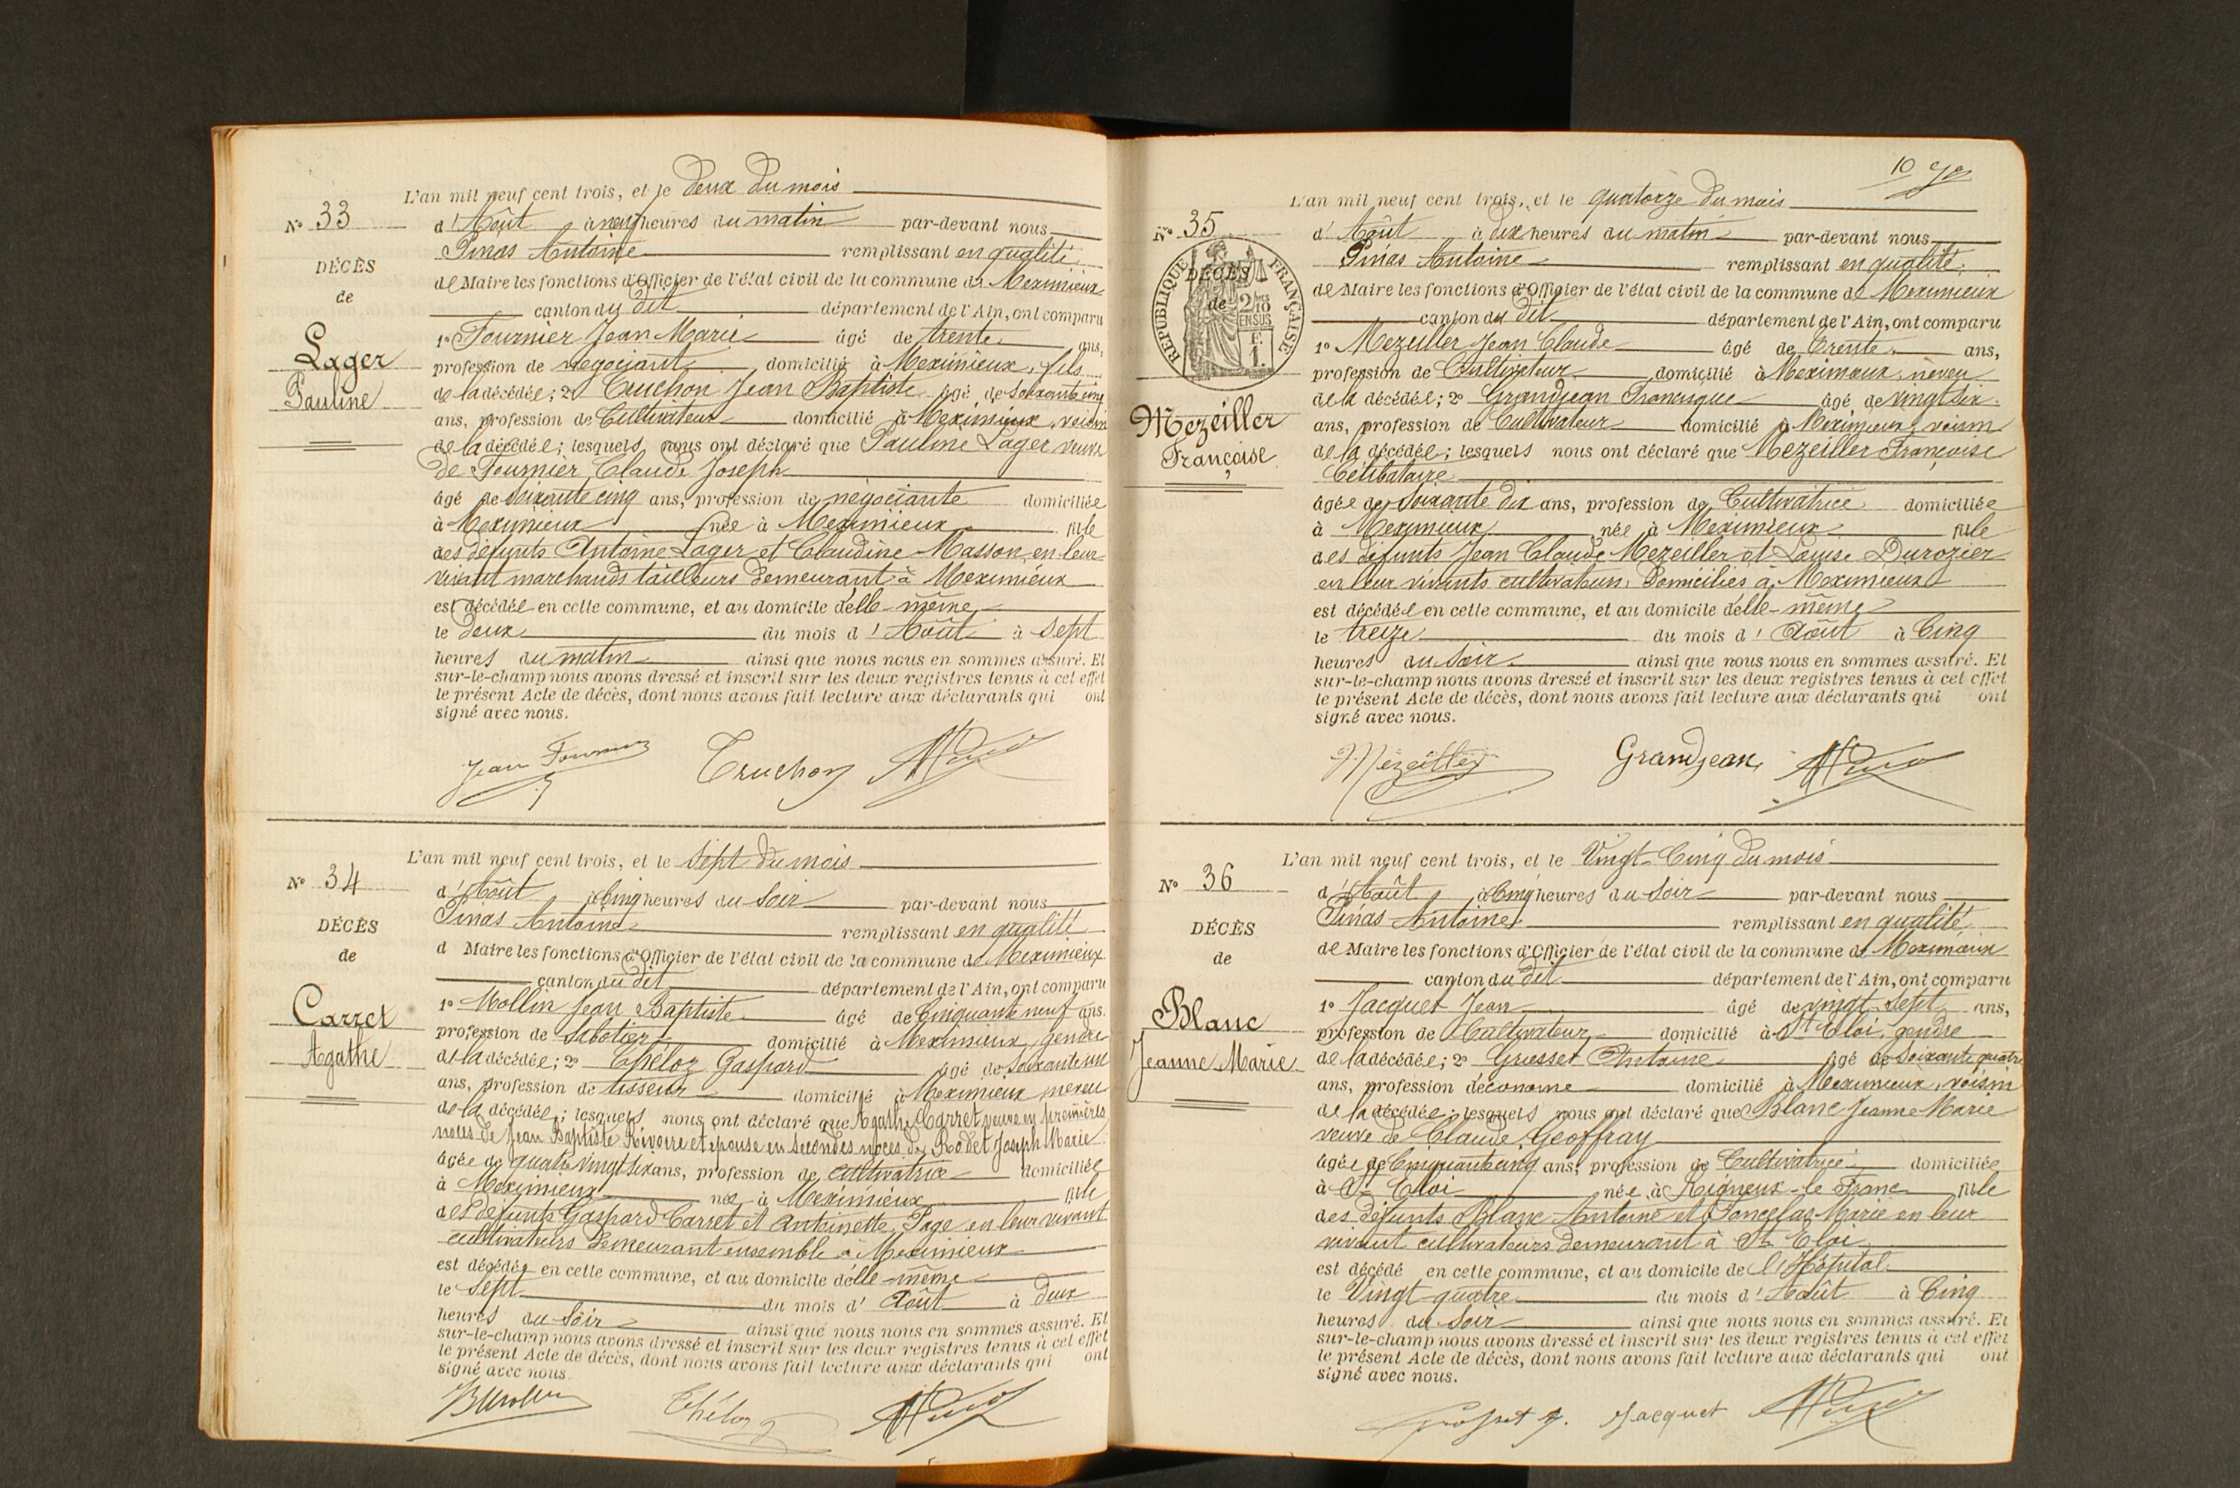 L'an mil neuf cent trois, et le deux du mois
N° 33
d'Août à neuf heures du matin par-devant nous
Pinas Antoine remplissant en qualité
DÉCÈS
de Maire les fonctions d'Officier de l'état civil de la commune de Meximieux
de
canton du dit département de l'Ain, ont comparu
1° Fournier Jean Marie âgé de trente ans,
Lager
profession de négociant domicilié à Meximieux, fils
Pauline
de la décédée; 2° Truchon Jean Baptiste âgé de soixante cinq
ans, profession de Cultivateur domicilié à Meximieux, voisin
de la décédée; lesquels nous ont déclaré que Pauline Lager veuve
de Fournier Claude Joseph
âgé de soixante cinq ans, profession de négociante domiciliée
à Meximieux née à Meximieux fille
des défunts Antoine Lager et Claudine Masson, en leur
vivant marchands tailleurs demeurant à Meximieux
est décédée en cette commune, et au domicile d'elle-même
le deux du mois d'Août à sept
heures du matin ainsi que nous nous en sommes assuré. Et
sur-le-champ nous avons dressé et inscrit sur les deux registres tenus à cet effet
le présent Acte de décès, dont nous avons fait lecture aux déclarants qui ont
signé avec nous.
Jean Fournier Truchon
L'an mil neuf cent trois, et le sept du mois
N° 34
d'Août à Cinq heures du soir par-devant nous
DÉCÈS
Pinas Antoine remplissant en qualité
de
d Maire les fonctions d'Officier de l'état civil de la commune de Meximieux
canton du dit département de l'Ain, ont comparu
Carret
1° Mollin Jean Baptiste âgé de Cinquante neuf ans.
Agathe
profession de Sabotier domicilié à Meximieux, gendre
de la décédée; 2° Théloz Gaspard âgé de soixante un
ans, profession de tisseur domicilié à Meximieux neveu
de la décédée; lesquels nous ont déclaré que Agathe Carret veuve en premières
noces de Jean Baptiste Rivoire et épouse en secondes noces de Rodet Joseph Marie
âgée de quatre vingt six ans, profession de cultivatrice domiciliée
à Meximieux née à Meximieux fille
des défunts Gaspard Carret et Antoinette Page en leur vivant
cultivateurs demeurant ensemble à Meximieux
est décédée en cette commune, et au domicile d'elle-même
le sept du mois d'Août à deux
heures du soir ainsi que nous nous en sommes assuré. Et
sur-le-champ nous avons dressé et inscrit sur les deux registres tenus à cet effet
le présent Acte de décès, dont nous avons fait lecture aux déclarants qui ont
signé avec nous.
Théloz
10
L'an mil neuf cent trois, et le quatorze du mois
N° 35
d'Août à dix heures du matin par-devant nous
Pinas Antoine remplissant en qualité
RÉPUBLIQUE FRANÇAISE
DÉCÈS
de
2/10 EN SUS
F. 1.
de Maire les fonctions d'Officier de l'état civil de la commune de Meximieux
canton du dit département de l'Ain, ont comparu
1° Mezeiller Jean Claude âgé de Trente ans,
profession de Cultivateur domicilié à Meximieux, neveu
de la décédée; 2° Grandjean Francisque âgé de vingt six
Mezeiller
Françoise
ans, profession de Cultivateur domicilié à Meximieux, voisin
de la décédée; lesquels nous ont déclaré que Mezeiller Françoise
Célibataire
âgée de soixante dix ans, profession de Cultivatrice domiciliée
à Meximieux née à Meximieux fille
des défunts Jean Claude Mezeiller et Louise Durozier
en leur vivants cultivateurs, domiciliés à Meximieux
est décédée en cette commune, et au domicile d'elle-même
le treize du mois d'Août à Cinq
heures du soir ainsi que nous nous en sommes assuré. Et
sur-le-champ nous avons dressé et inscrit sur les deux registres tenus à cet effet
le présent Acte de décès, dont nous avons fait lecture aux déclarants qui ont
signé avec nous.
Mézeiller Grandjean
L'an mil neuf cent trois, et le Vingt-Cinq du mois
N° 36
d'Août à Cinq heures du soir par-devant nous
DÉCÈS
Pinas Antoine remplissant en qualité
de
de Maire les fonctions d'Officier de l'état civil de la commune de Meximieux
canton du dit département de l'Ain, ont comparu
Blanc
1° Jacquet Jean âgé de vingt sept ans,
Jeanne Marie
profession de Cultivateur domicilié à St Eloi, gendre
de la décédée; 2° Grosset Antoine âgé de soixante quatre
ans, profession d'économe domicilié à Meximieux, voisin
de la décédée; lesquels nous ont déclaré que Blanc Jeanne Marie
veuve de Claude Geoffray
âgée de Cinquante cinq ans, profession de Cultivatrice domiciliée
à St Eloi née à Rigneux-le-Franc fille
des défunts Blanc Antoine et Marie en leur
vivant cultivateurs demeurant à St Eloi
est décédé en cette commune, et au domicile de l'Hôpital
le Vingt-quatre du mois d'Août à Cinq
heures du soir ainsi que nous nous en sommes assuré. Et
sur-le-champ nous avons dressé et inscrit sur les deux registres tenus à cet effet
le présent Acte de décès, dont nous avons fait lecture aux déclarants qui ont
signé avec nous.
Grosset Jacquet